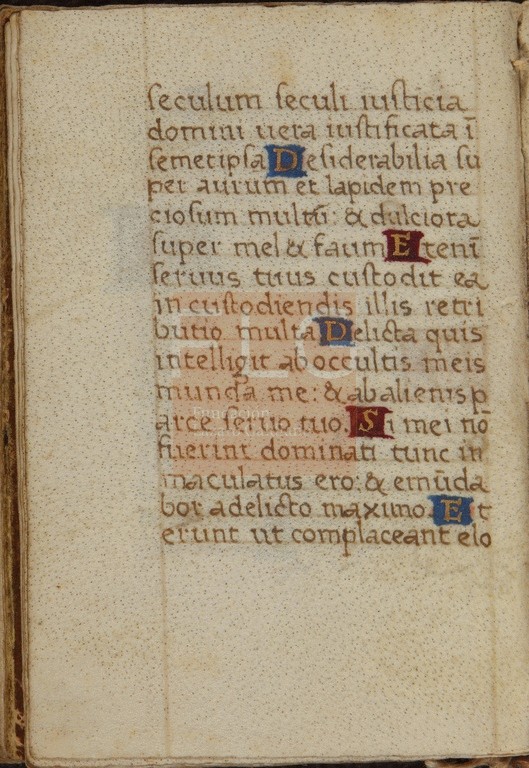 seculum seculi iusticia
domini uera iustificata ī
semetipsa Desiderabilia su
per aurum et lapidem pre
ciosum multū: & dulciora
super mel & fauum Etenī
seruus tuus custodit ea
in custodiendis illis retri
butio multa Delicta quis
intelligit ab occultis meis
munda me: & ab alienis p
arce seruo tuo. Si mei nō
fuerint dominati tunc in
maculatus ero: & emūda
bor a delicto maximo. Et
erunt ut complaceant elo
FLG
Fundación